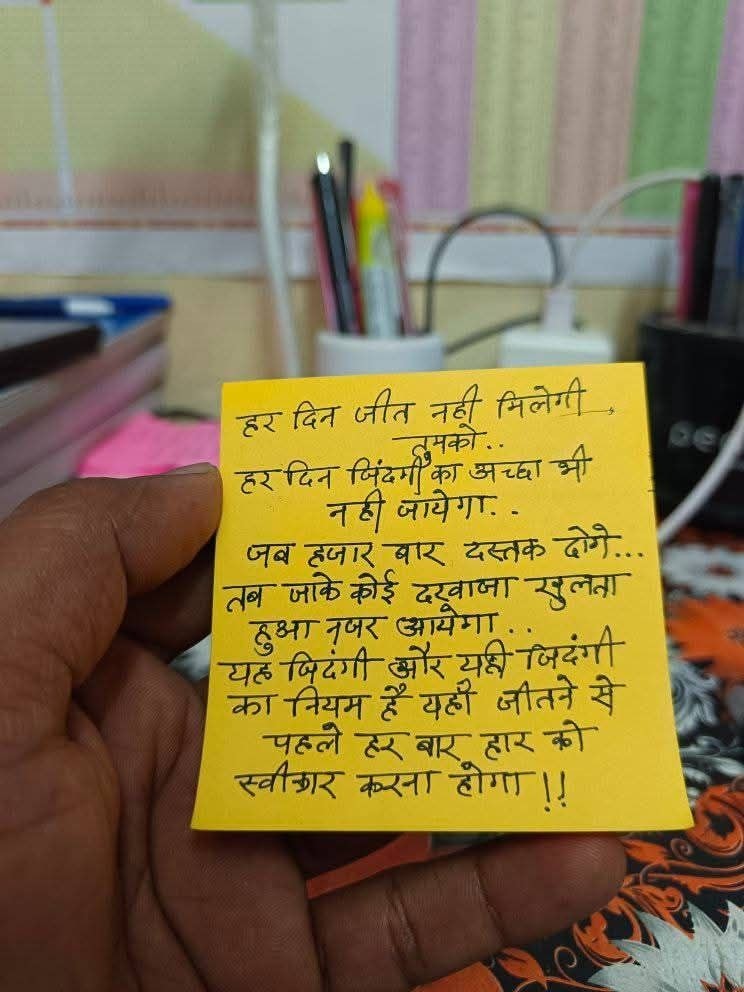 हर दिन जीत नही मिलेगी
तुमको..
हर दिन जिंदगी का अच्छा भी
नही जायेगा..
जब हजार बार दस्तक दोगे...
तब जाके कोई दरवाजा खुलता
हुआ नजर आयेगा..
यह जिदंगी और यही जिदंगी
का नियम है यहाँ जीतने से
पहले हर बार हार को
स्वीकार करना होगा!!